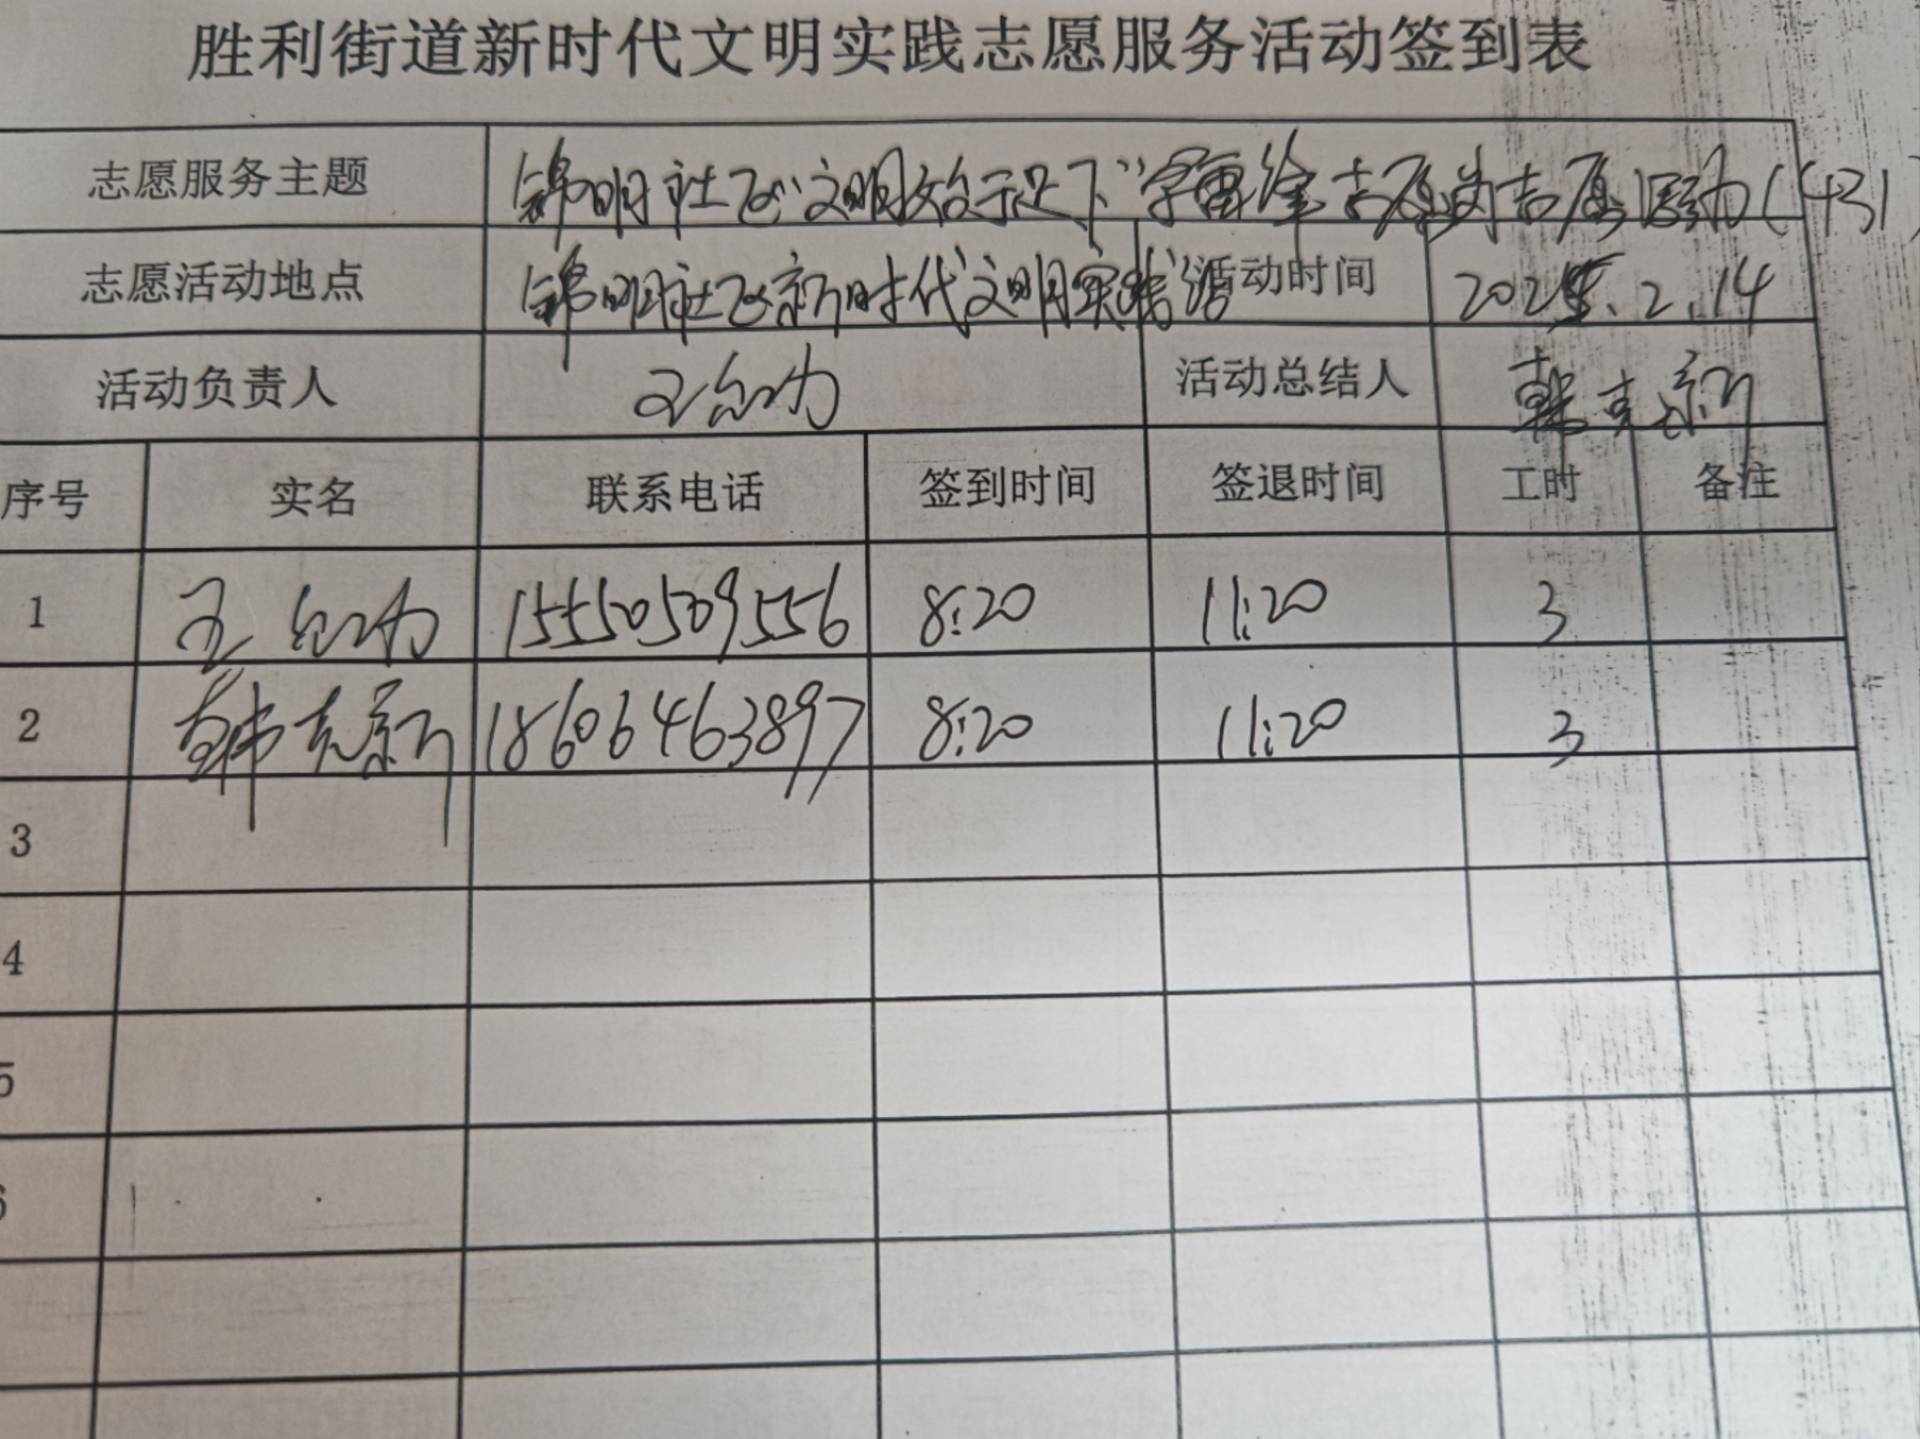 胜利街道新时代文明实践志愿服务活动签到表
志愿服务主题 锦明社区"文明始于足下" 志愿 志愿活动(431)
志愿活动地点 锦明社区新时代文明实践 活动时间 2025.2.14
活动负责人 王 活动总结人 韩克新
序号 实名 联系电话 签到时间 签退时间 工时 备注
1 王 15550509556 8:20 11:20 3
2 韩克新 18606463897 8:20 11:20 3
3
4
5
6